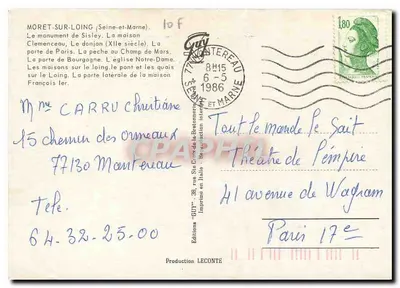 MORET-SUR-LOING (Seine-et-Marne).
Le monument de Sisley. La maison
Clemenceau. Le donjon (XIIe siècle). La
porte de Paris. La pêche au Champ de Mars.
La porte de Bourgogne. L'église Notre-Dame.
Les maisons sur le loing, le pont et les quais
sur le Loing. La porte latérale de la maison
François Ier.
10F
Guy
77 MONTEREAU
8H15
6-5
1986
SEINE ET MARNE
1,80
Mme CARRU Christiane
15 chemin des ormeaux
77130 Montereau
Tele.
64-32-25-00
Editions "GUY" - 38, rue Ste Croix de la Bretonnerie
Imprimé en Italie
Tout le monde le sait
Théâtre de l'empire
41 avenue de Wagram
Paris 17e
Production LECONTE